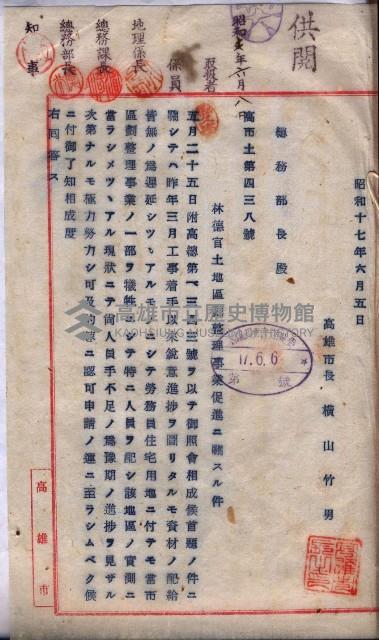 供閱
昭和十七年六月五日
高雄市長 橫山竹男
總務部長殿
高市土第四三八號
林德官土地區劃整理事業促進ニ關スル件
五月二十五日附高總第一三四三號ヲ以テ御照會相成候首題ノ件ニ
關シテハ昨年三月工事着手以來銳意進捗ヲ圖リタルモ資材ノ配給
皆無ノ爲遲延シツヽアルモノニシテ勞務員住宅用地ニ付テモ當市
區劃整理事業ノ一部ヲ犧牲ニシテ特ニ人員ヲ配シ該地區ノ實測ニ
當ラシメツヽアル現狀ニテ尙人員手不足ノ爲豫期ノ進捗ヲ見ザル
次第ナルモ極力努力シ可及的速ニ認可申請ノ運ニ至ラシムベク候
ニ付御了知相成度
右回答ス
昭和 年六月八日
取扱者
係員
地理係長
總務課長
總務部長
知事
17.6.6
第 號
高雄市
高雄市立歷史博物館
KAOHSIUNG MUSEUM OF HISTORY